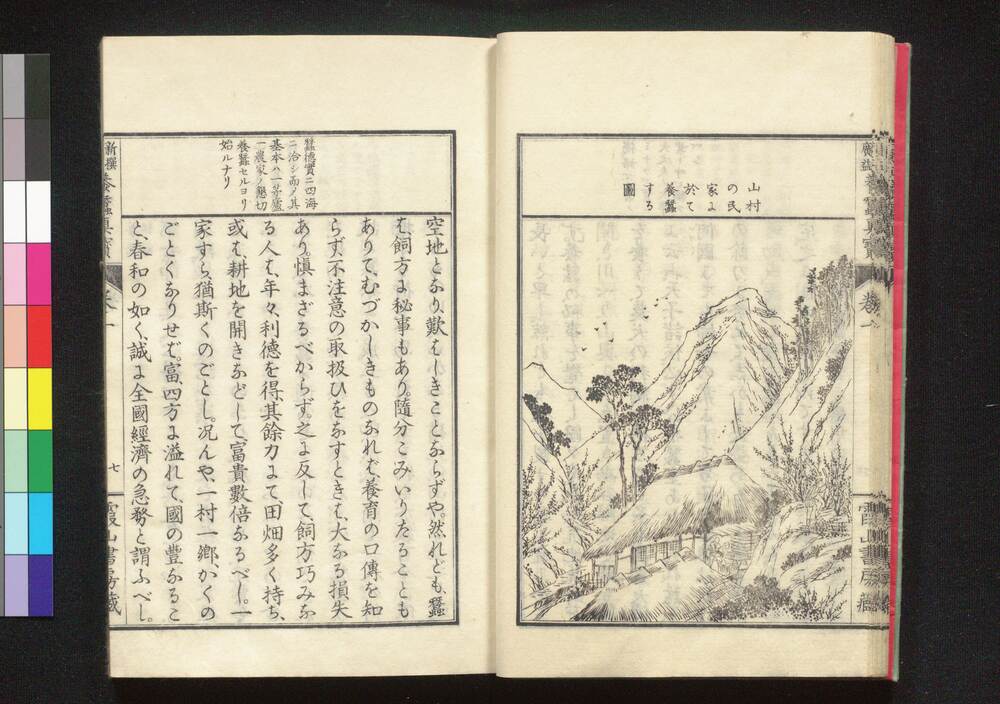 山村
の民
家に
於て
養蚕
する
圖
卷一
霞山書房藏
蠶德實ニ四海
ニ洽シ而ノ其
基本ハ一茅廬
一農家ノ懇切
養蠶セルヨリ
始ルナリ
空地となり、歎はしきことならずや。然れども、蠶
は、飼方に秘事もあり。隨分こみいりたることとも
ありて、むづかしきものなれば、養育の口傳を知
らず、不注意の取扱ひをなすときは、大なる損失
あり。慎まざるべからず。之に反して、飼方巧みな
る人は、年々、利德を得、其餘力にて、田畑多く持ち、
或は、耕地を開きなどして、富貴數倍なるべし。一
家すら、猶斯くのごとし。况んや、一村一鄉、かくの
ごとくなりせば、富、四方に溢れて、國の豊なるこ
と、春和の如く、誠に全國經濟の急務と謂ふべし。
七
霞山書房藏